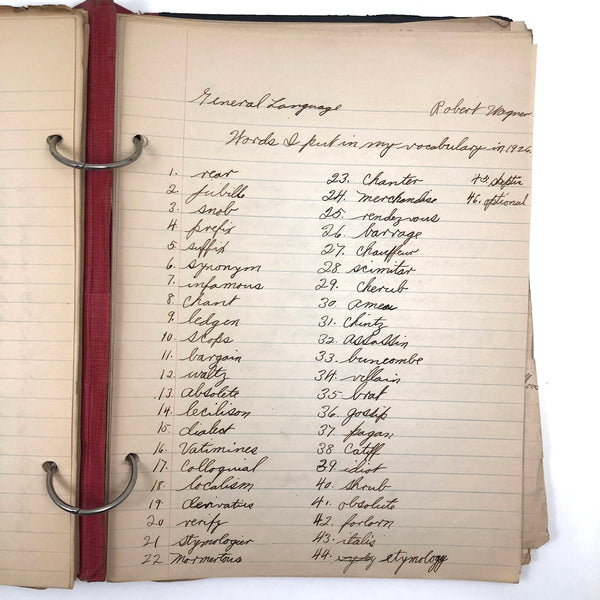 General Language Robert Wagner
Words I put in my vocabulary in 1926.
1. rear
2. Jubille
3. snob
4. prefix
5. suffix
6. synonym
7. infamous
8. chant
9. ledgen
10. scops
11. bargain
12. waltz
13. Absolete
14. lecilison
15. dialect
16. Vatimines
17. Colloquial
18. localism
19. derivatius
20. verify
21. stymologier
22. Mormertous
23. Chanter
24. Merchandise
25. rendezvous
26. barrage
27. Chauffeur
28. scimitar
29. Cherub
30.
31. Chintz
32. Assassin
33. buncombe
34. villain
35. brat
36. gossip
37. pagan
38. Catiff
39. idiot
40. shrub
41. obsolute
42. forlorn
43. italis
44. etymology
45.
46. optional